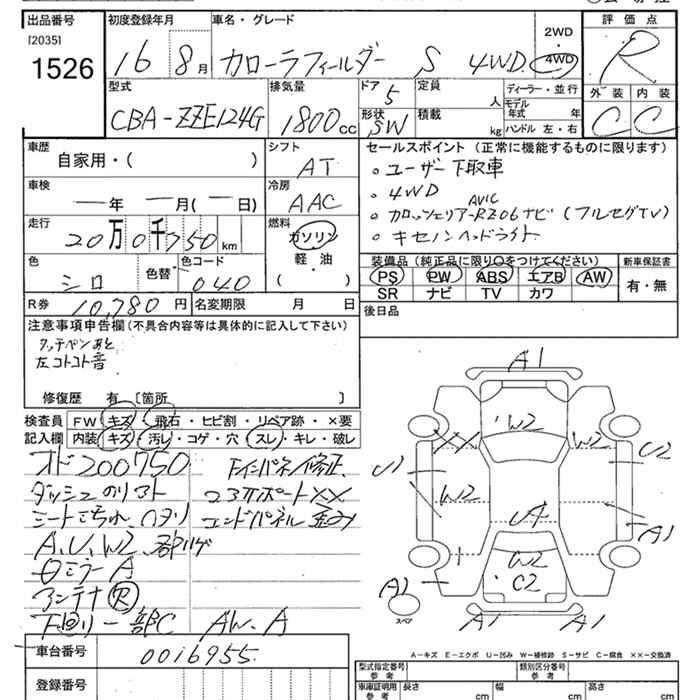 出品番号 初度登録年月 車名・グレード 評価点
[2035] 1526
16 8月 カローラフィールダー S 4WD 2WD 4WD R
型式 排気量 ドア 定員 ディーラー・並行 外装 内装
CBA-ZZE124G 1800cc 5 人 モデル年式 年 C C
形状 積載 SW kg ハンドル 左・右
車歴 シフト セールスポイント (正常に機能するものに限ります)
自家用・( ) AT
。ユーザー下取車
車検 冷房 。4WD
ー年 ー月(ー日) AAC
AVIC
。カロッツェリア-RZ06ナビ (フルセグTV)
走行 燃料
20万0千750km ガソリン 。キセノンヘッドライト
色 色替 色コード 軽・油
シロ 040 ( ・ )
装備品 (純正品に限り○をつけてください) 新車保証書
PS PW ABS エアB AW 有・無
SR ナビ TV カワ
R券 10,780円 名変期限 月 日
後日品
注意事項申告欄 (不具合内容等は具体的に記入して下さい)
タッチペンあと
左コトコト音
修復歴 有 〔箇所 〕
検査員 FW キズ・飛石・ヒビ割・リペア跡・×要
記入欄 内装 キズ・汚レ・コゲ・穴・スレ・キレ・破レ
オド200750
ダッシュのリアト
A,U,W2 部ハゲ
ミラーA
アンテナR
下回リ一部C AW.A
修正
サポートXX
エンドパネル歪み
A1
W2
XX W2 U2
U1 W2
U4 A1
W2
C2
A2
スペア
A1 A1
A-キズ E-エクボ U-凹み W-補修跡 S-サビ C-腐食 XX-交換済
車台番号 0016955
登録番号
型式指定番号 参考 類別区分番号 参考
車庫証明用 参考 長さ cm 幅 cm 高さ cm